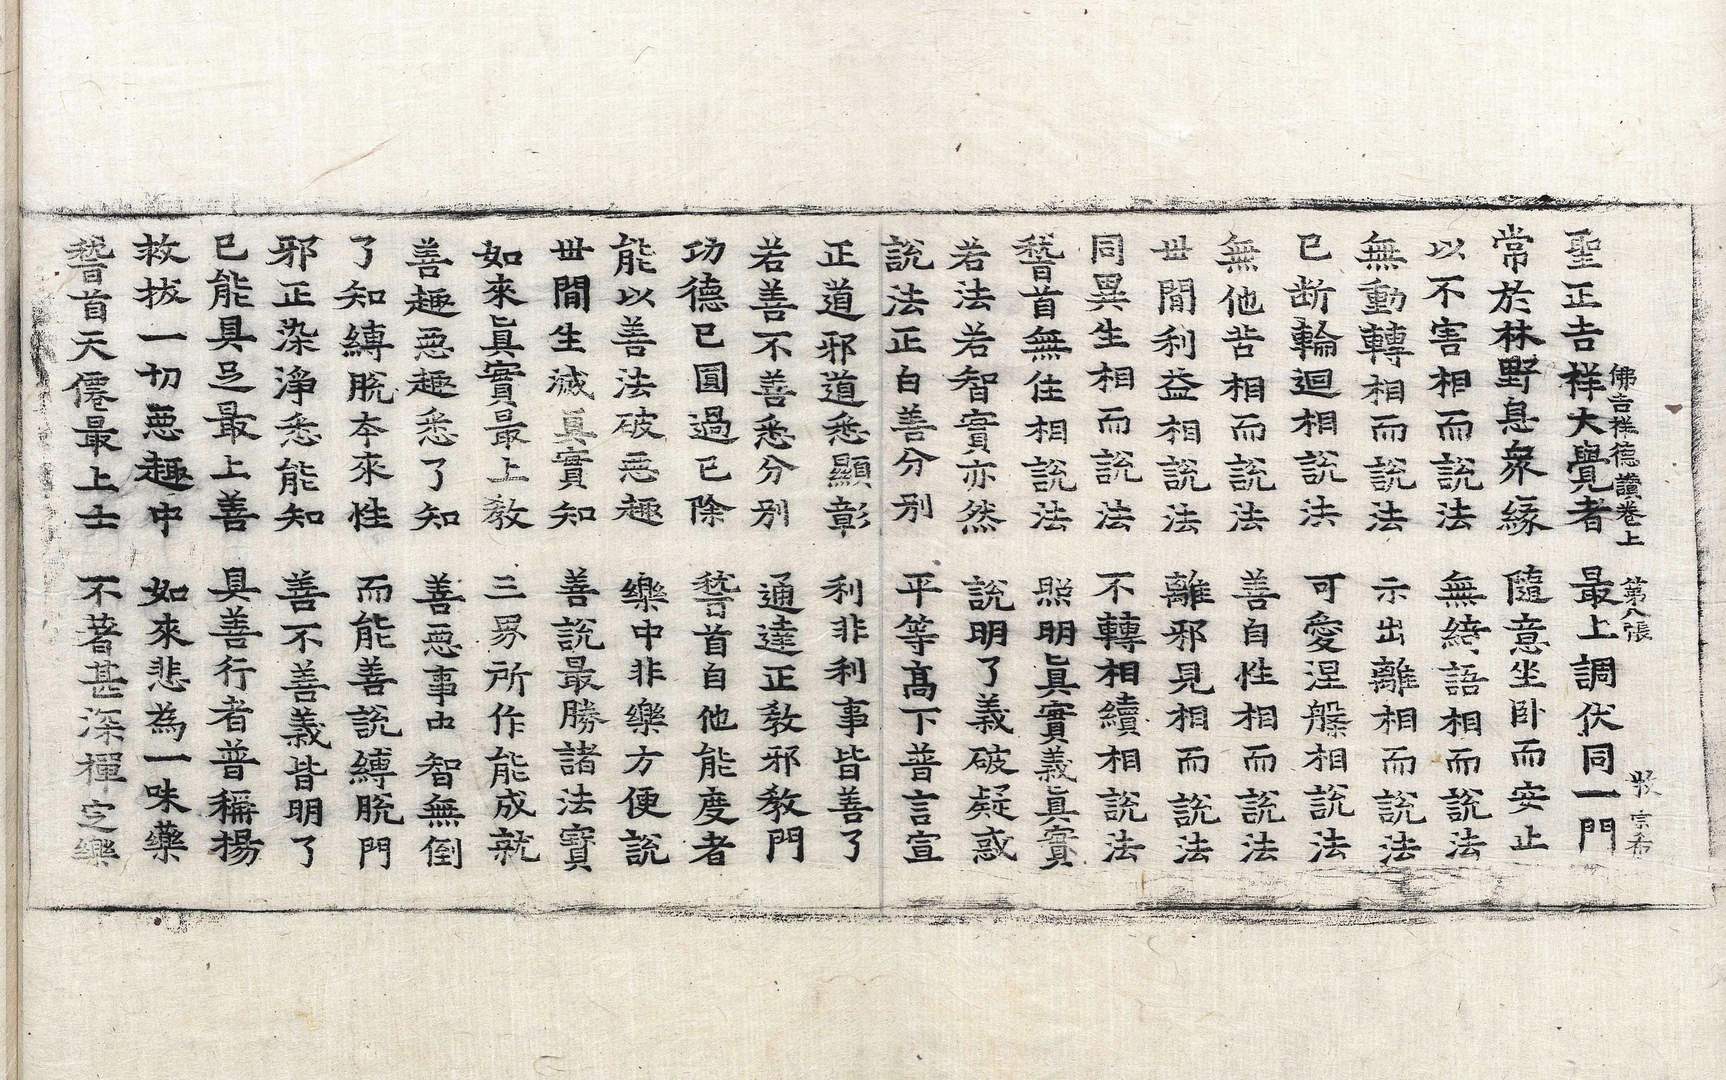 佛吉祥德讚卷上 第八張 宗布
聖正吉祥大覺者 最上調伏同一門
常於林野息衆緣 隨意坐卧而安止
以不害相而說法 無綺語相而說法
無動轉相而說法 示出離相而說法
已断輪迴相說法 可愛涅槃相說法
無他苦相而說法 善自性相而說法
世間利益相說法 離邪見相而說法
同異生相而說法 不轉相續相說法
稽首無住相說法 照明真實義真實
若法若智實亦然 說明了義破疑惑
說法正白善分别 平等髙下普言宣
正道邪道悉顯彰 利非利事皆善了
若善不善悉分别 通達正教邪教門
功德已圓過已除 稽首自他能度者
能以善法破惡趣 樂中非樂方便說
世間生滅真實知 善說最勝諸法寶
如來真實最上教 三界所作能成就
善趣惡趣悉了知 善惡事中智無倒
了知縛脫本來性 而能善說縛脫門
邪正染淨悉能知 善不善義皆明了
已能具足最上善 具善行者普稱揚
救拔一切惡趣中 如來悲為一味藥
稽首天僊最上士 不著甚深禪定樂